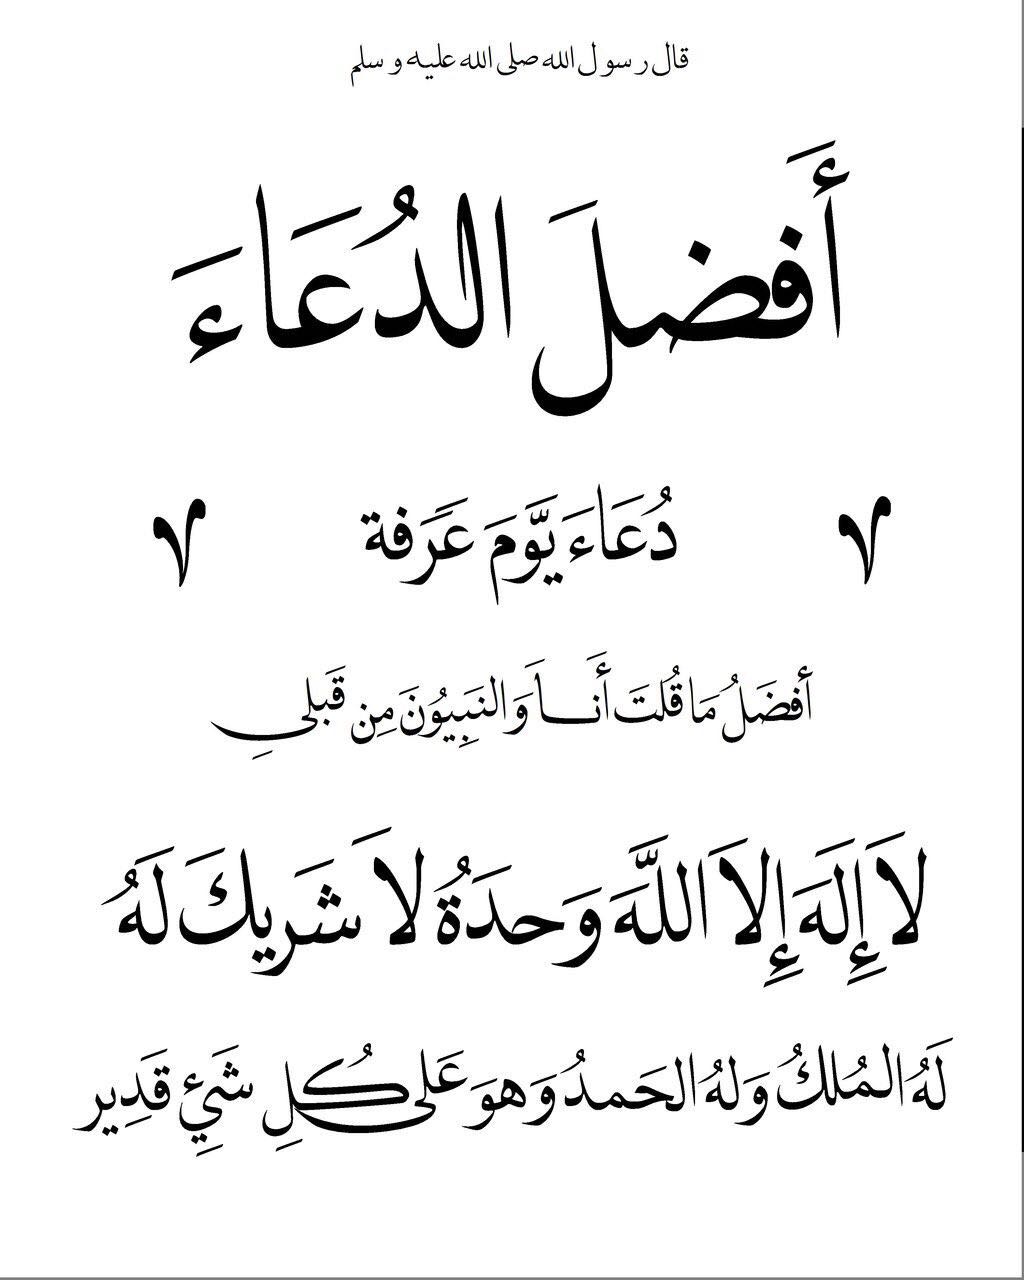 قال رسول الله صلى الله عليه وسلم
أَفضلَ الدُعَاءَ
دُعَاءَ يَّوْمَ عَرَفة
أفضَلُ مَا قُلتَ أَنَاَ وَالنَبِيُونَ مِن قَبلىِ
لاَ إِلَهَ إِلاَ اللَّهَ وَحدَةُ لاَ شَريكَ لَهُ
لَهُ المُلكُ وَلهُ الحَمدُ وَهوَ عَلى كُلِ شَيِْ قَدِير